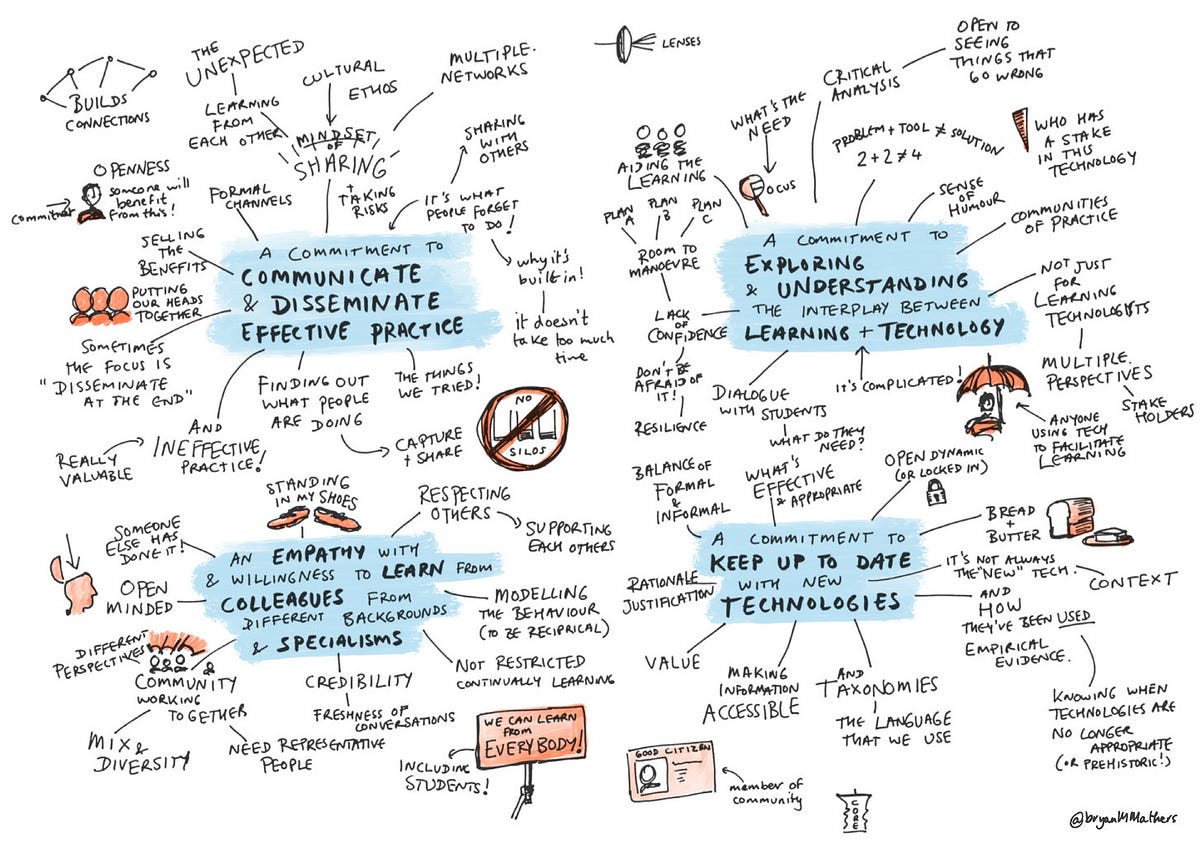 BUILDS
CONNECTIONS
THE
UNEXPECTED
LEARNING
FROM
EACH OTHER
CULTURAL
ETHOS
MULTIPLE.
NETWORKS
MINDSET
OF
SHARING
+
TAKING
RISKS
SHARING
WITH
OTHERS
OPENNESS
commitment
someone will
benefit
from this!
FORMAL
CHANNELS
IT'S WHAT
PEOPLE FORGET
TO DO!
why it's
built in!
it doesn't
take too much
time
SELLING
THE
BENEFITS
PUTTING
OUR HEADS
TOGETHER
A COMMITMENT TO
COMMUNICATE
& DISSEMINATE
EFFECTIVE PRACTICE
SOMETIMES
THE FOCUS IS
"DISSEMINATE
AT THE END"
AND
INEFFECTIVE
PRACTICE!
REALLY
VALUABLE
FINDING OUT
WHAT PEOPLE
ARE DOING
CAPTURE
+ SHARE
THE THINGS
WE TRIED!
NO
SILOS
LENSES
OPEN TO
SEEING
THINGS THAT
GO WRONG
CRITICAL
ANALYSIS
WHAT'S THE
NEED
FOCUS
AIDING THE
LEARNING
PROBLEM + TOOL ≠ SOLUTION
2+2≠4
WHO HAS
A STAKE
IN THIS
TECHNOLOGY
SENSE
OF
HUMOUR
COMMUNITIES
OF PRACTICE
PLAN
A
PLAN
B
PLAN
C
ROOM TO
MANOEVRE
A COMMITMENT TO
EXPLORING
& UNDERSTANDING
THE INTERPLAY BETWEEN
LEARNING + TECHNOLOGY
NOT JUST
FOR
LEARNING
TECHNOLOGISTS
MULTIPLE.
PERSPECTIVES
STAKE
HOLDERS
LACK
OF
CONFIDENCE
DON'T BE
AFRAID OF
IT!
RESILIENCE
DIALOGUE
WITH STUDENTS
WHAT DO THEY
NEED?
IT'S COMPLICATED!
ANYONE
USING TECH
TO FACILITATE
LEARNING
STANDING
IN MY SHOES
RESPECTING
OTHERS
SUPPORTING
EACH OTHERS
SOMEONE
ELSE HAS
DONE IT!
OPEN
MINDED
AN EMPATHY WITH
& WILLINGNESS TO LEARN FROM
COLLEAGUES FROM
DIFFERENT BACKGROUNDS
& SPECIALISMS
MODELLING
THE BEHAVIOUR
(TO BE RECIPRICAL)
NOT RESTRICTED
CONTINUALLY LEARNING
DIFFERENT
PERSPECTIVES
COMMUNITY
WORKING
TOGETHER
MIX &
DIVERSITY
NEED REPRESENTATIVE
PEOPLE
CREDIBILITY
FRESHNESS OF
CONVERSATIONS
WE CAN LEARN
FROM
EVERYBODY!
INCLUDING
STUDENTS!
BALANCE OF
FORMAL
&
INFORMAL
WHAT'S
EFFECTIVE
& APPROPRIATE
OPEN DYNAMIC
(OR LOCKED IN)
BREAD
+
BUTTER
A COMMITMENT TO
KEEP UP TO DATE
WITH NEW
TECHNOLOGIES
IT'S NOT ALWAYS
THE "NEW" TECH.
CONTEXT
AND
HOW
THEY'VE BEEN USED
EMPIRICAL
EVIDENCE.
KNOWING WHEN
TECHNOLOGIES ARE
NO LONGER
APPROPRIATE
(OR PREHISTORIC!)
RATIONALE
JUSTIFICATION
VALUE
MAKING
INFORMATION
ACCESSIBLE
AND
TAXONOMIES
THE LANGUAGE
THAT WE USE
GOOD CITIZEN
member of
community
CORE
@bryanMMathers